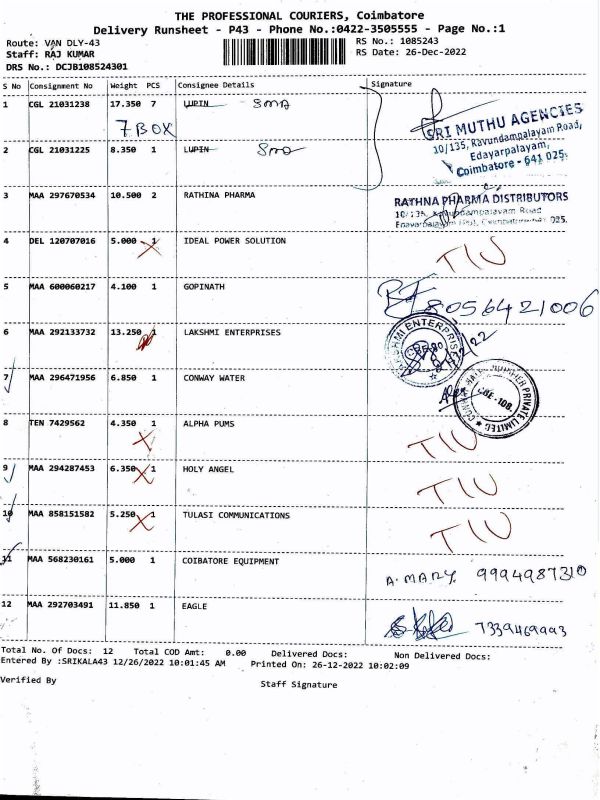 THE PROFESSIONAL COURIERS, Coimbatore
Delivery Runsheet - P43 - Phone No.:0422-3505555 - Page No.:1
Route: VAN DLY-43
RS No.: 1085243
Staff: RAJ KUMAR
RS Date: 26-Dec-2022
DRS No.: DCJB108524301
S No Consignment No Weight PCS Consignee Details Signature
1 CGL 21031238 17.350 7 LUPIN SMA
7 BOX
SRI MUTHU AGENCIES
10/135, Ravundampalayam Road,
Edayarpalayam,
Coimbatore - 641 025.
2 CGL 21031225 8.350 1 LUPIN
3 MAA 297670534 10.500 2 RATHINA PHARMA
RATHNA PHARMA DISTRIBUTORS
10/135, Ravundampalayam Road
025.
4 DEL 120707016 5.000 1 IDEAL POWER SOLUTION
5 MAA 600060217 4.100 1 GOPINATH
8056421006
6 MAA 292133732 13.250 1 LAKSHMI ENTERPRISES
LAKSHMI ENTERPRISES
7 MAA 296471956 6.850 1 CONWAY WATER
PRIVATE LIMITED
CBE-108.
8 TEN 7429562 4.350 1 ALPHA PUMS
9 MAA 294287453 6.350 1 HOLY ANGEL
10 MAA 858151582 5.250 1 TULASI COMMUNICATIONS
11 MAA 568230161 5.000 1 COIBATORE EQUIPMENT
A. MARY. 9994987310
12 MAA 292703491 11.850 1 EAGLE
7339469993
Total No. Of Docs: 12 Total COD Amt: 0.00 Delivered Docs: Non Delivered Docs:
Entered By :SRIKALA43 12/26/2022 10:01:45 AM Printed On: 26-12-2022 10:02:09
Verified By Staff Signature